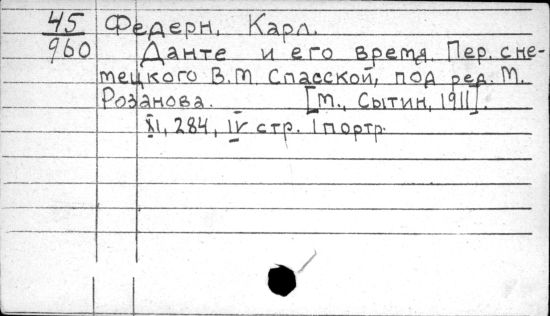 45 Федерн, Карл.
960 Данте и его время. Пер. с не-
мецкого В.М. Спасской, под ред. М.
Розанова. [М., Сытин, 1911].
XI, 284, IV стр. 1 портр.